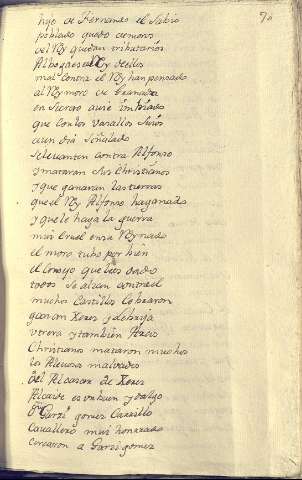 hijo de Fernando el Sabio
poblado quedo de moros
del Rey quedan tributarios
Alboaçes el Rey dellos
mal contra el Rey han pensado
al Rey moro de Granada
en Secreto avie imbiado
que con los vasallos Suios
a un dia Señalado
se levanten contra Alfonso
y mataran Sus Christianos
y que ganaran las tierras
que el Rey Alfonso ha ganado
y que le haga la guerra
mui Cruel en su Reynado
el moro tubo por bien
el Consejo que le es dado
todos Se alzan contra el
muchos Castillos Cobraron
ganan Xerez y Lebrija
Utrera y tambien Arcos
Christianos mataron muchos
los Alevosos malvados
del Alcazar de Xerez
Alcaide es un buen ydalgo
Dn Garzi gomez Carrillo
Cavallero mui honrrado
Cercaron a Garzi gomez